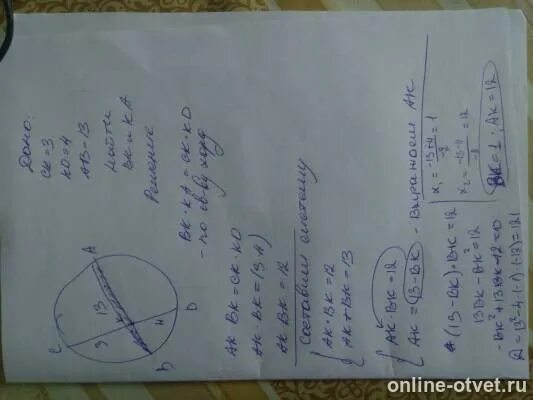 Дано:
СК=3
KD=4
AB=13
Найти
BK и KA
Решение
BK·KA=CK·KD
- по св-ву хорд
C
A
13
3
4
B
D
AK·BK=CK·KD
AK·BK=(3·4)
AK·BK=12
Составим систему
AK·BK=12
AK+BK=13
AK·BK=12
AK=(13-BK) - Выражаем AK
(13-BK)·BK=12
13BK-BK²=12
-BK²+13BK-12=0
D=13²-4·(-1)·(-12)=121
x₁=-13+11/-2=1
x₂=-13-11/-2=12
BK=1; AK=12
online-otvet.ru